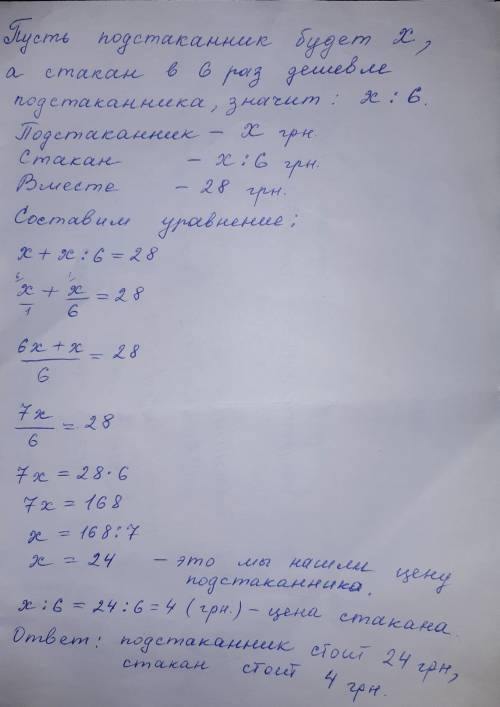 Пусть подстаканник будет х,
а стакан в 6 раз дешевле
подстаканника, значит: х : 6.
Подстаканник – х грн.
Стакан – х : 6 грн.
Вместе – 28 грн.
Составим уравнение:
х + х : 6 = 28
⁶⁾х/1 + ¹⁾х/6 = 28
6х + х/6 = 28
7х/6 = 28
7х = 28 · 6
7х = 168
х = 168 : 7
х = 24 – это мы нашли цену
подстаканника.
х : 6 = 24 : 6 = 4 (грн.) – цена стакана.
Ответ: подстаканник стоит 24 грн,
стакан стоит 4 грн.